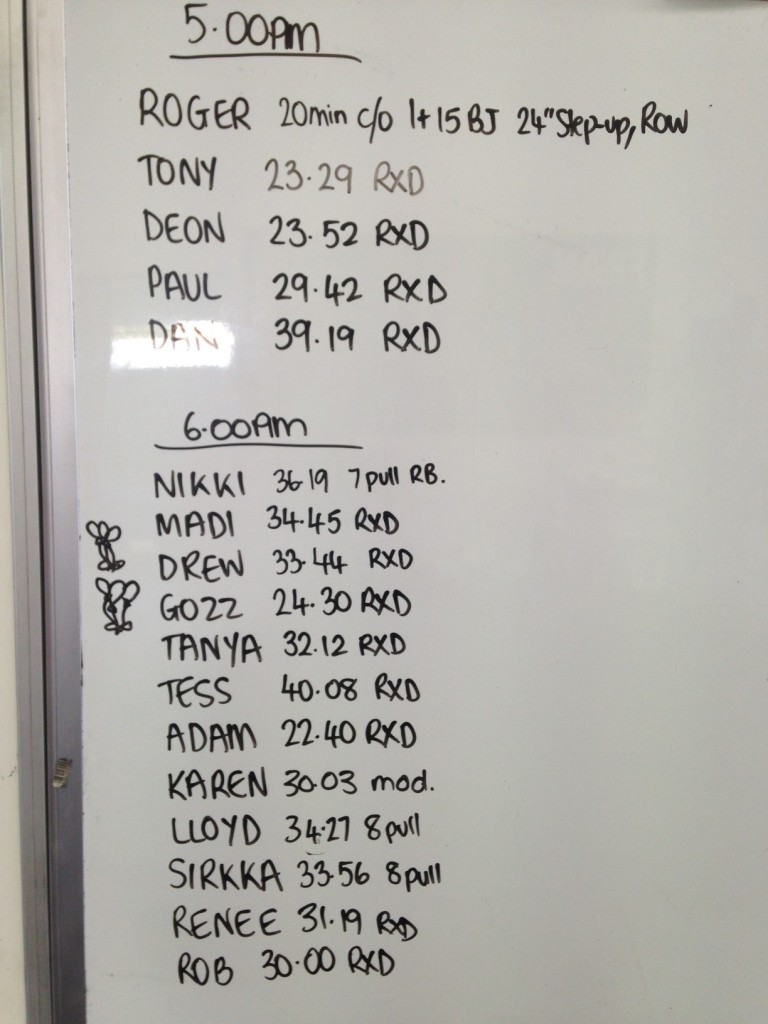 5.00pm
ROGER 20min c/o 1+15 BJ 24" Step-up, Row
TONY 23.29 RXD
DEON 23.52 RXD
PAUL 29.42 RXD
DAN 39.19 RXD
6.00Am
NIKKI 36.19 7pull RB.
MADI 34.45 RXD
DREW 33.44 RXD
GOZZ 24.30 RXD
TANYA 32.12 RXD
TESS 40.08 RXD
ADAM 22.40 RXD
KAREN 30.03 mod.
LLOYD 34.27 8pull
SIRKKA 33.56 8pull
RENEE 31.19 RXD
ROB 30.00 RXD